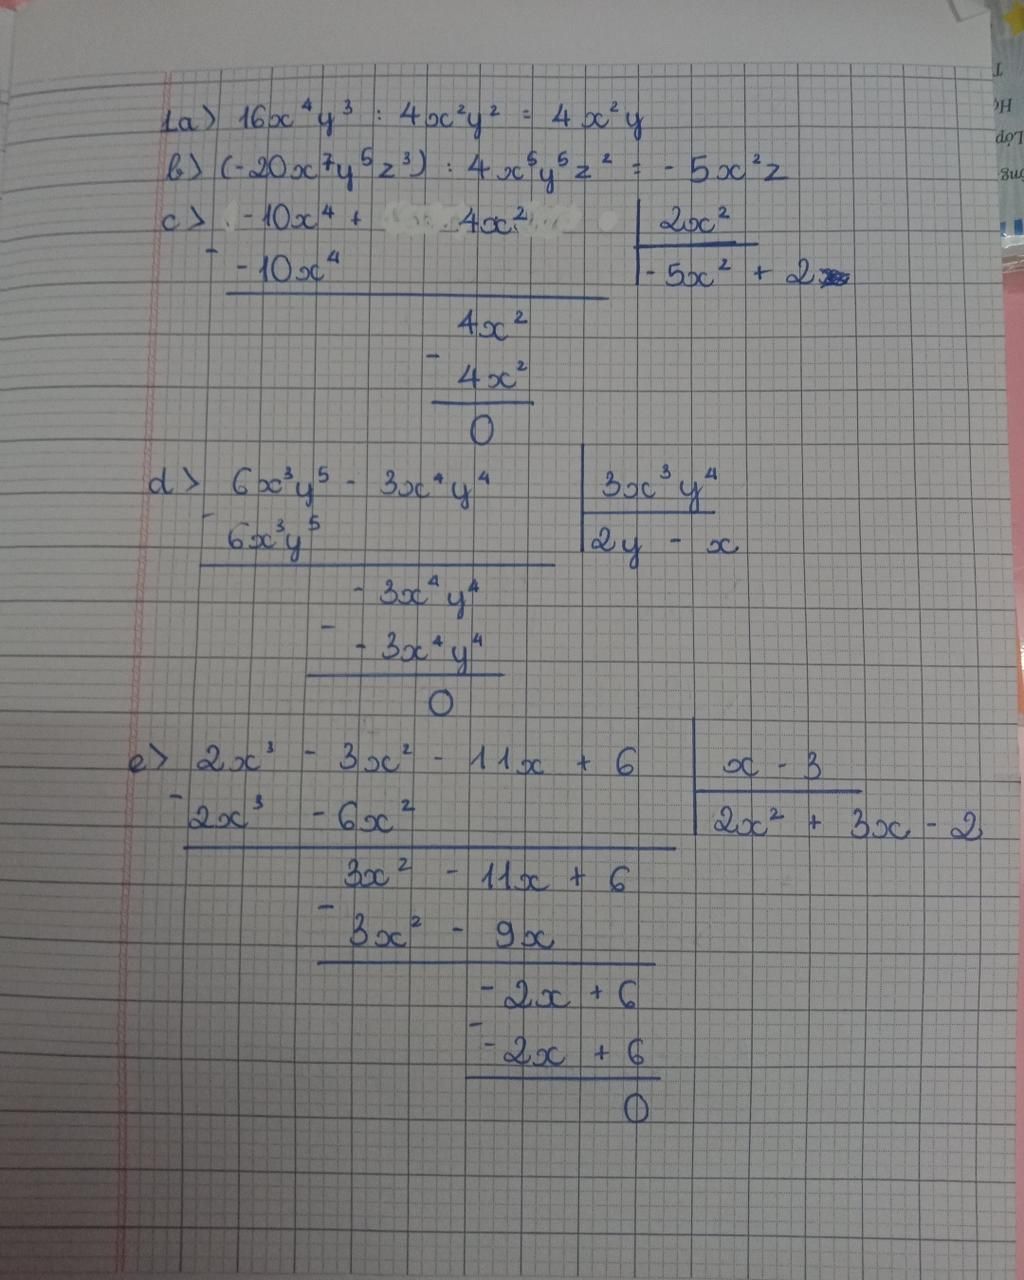 1a) 16x⁴y³ : 4x²y² = 4x²y
b) (-20x⁷y⁵z³) : 4x⁵y⁵z² = -5x²z
c) -10x⁴ + 4x² | 2x²
- -10x⁴ | -5x² + 2
4x²
- 4x²
0
d) 6x³y⁵ - 3x⁴y⁴ | 3x³y⁴
- 6x³y⁵ | 2y - x
-3x⁴y⁴
- -3x⁴y⁴
0
e) 2x³ - 3x² - 11x + 6 | x - 3
- 2x³ - 6x² | 2x² + 3x - 2
3x² - 11x + 6
- 3x² - 9x
-2x + 6
- -2x + 6
0